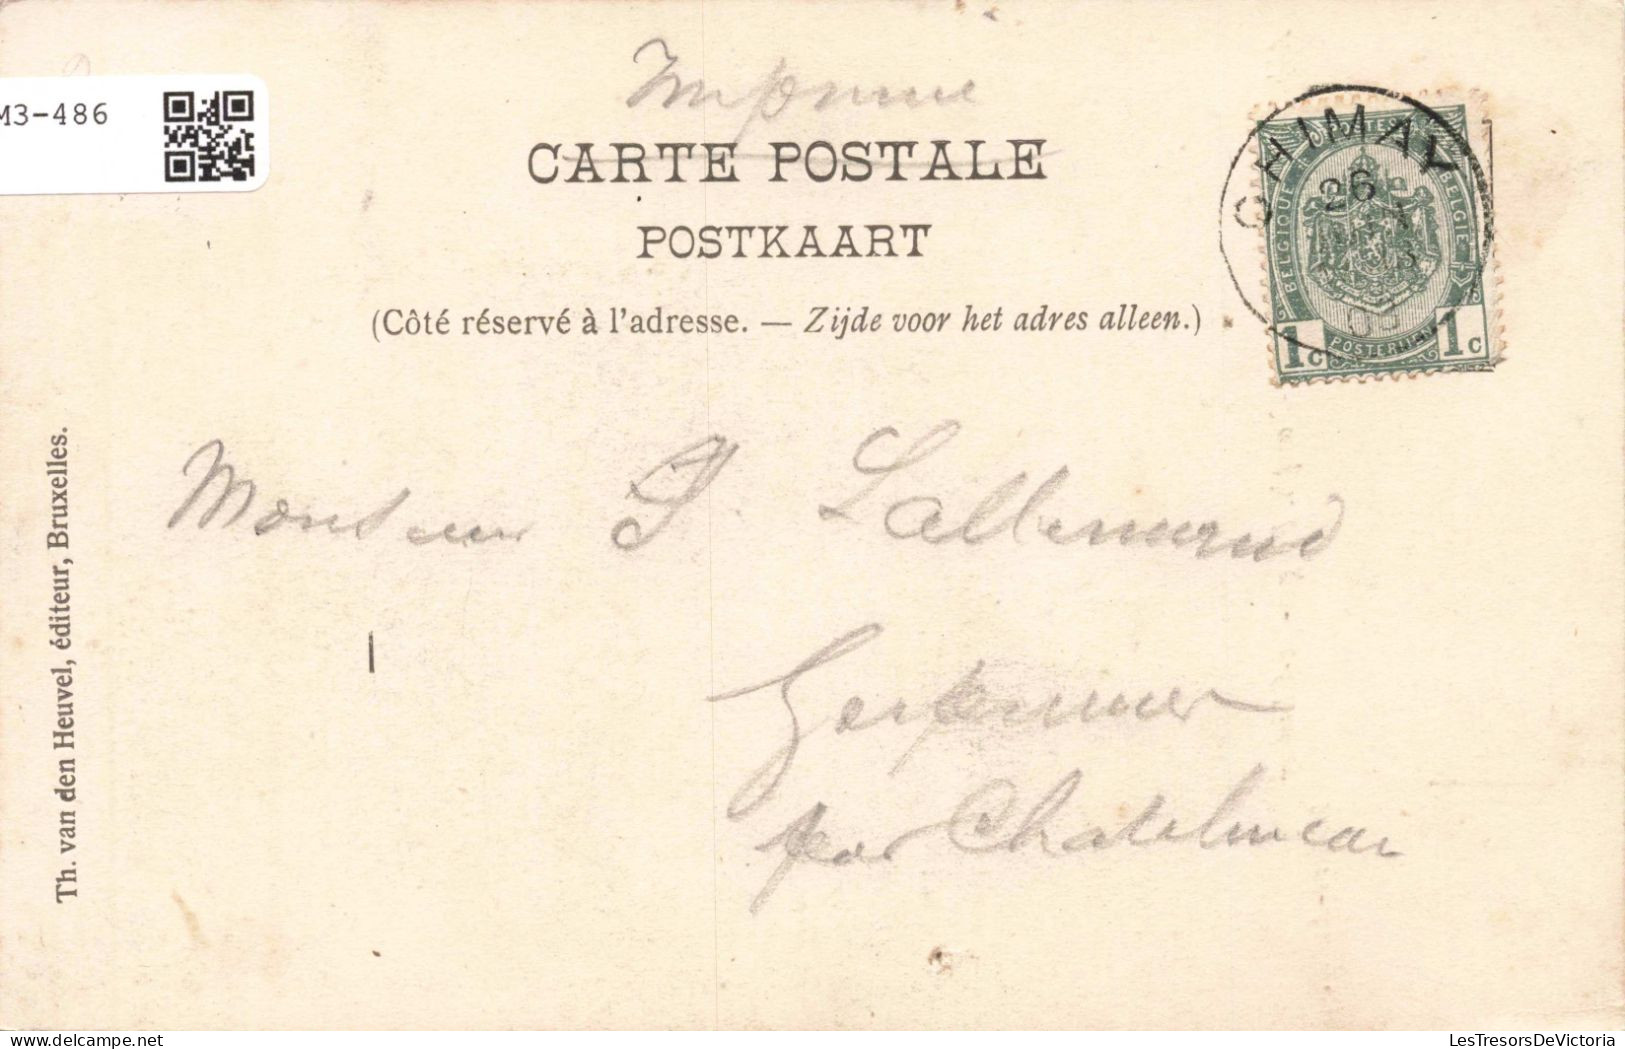 M3-486
Imprimé
CARTE POSTALE
POSTKAART
(Côté réservé à l'adresse. — Zijde voor het adres alleen.)
CHIMAY
26
03
BELGIQUE
POSTES
BELGIE
POSTERIJEN
1c 1c
Monsieur J. Lallemand
Gerpinnes
par Chatelineau
Th. van den Heuvel, éditeur, Bruxelles.
LesTresorsDeVictoria @ delcampe.net